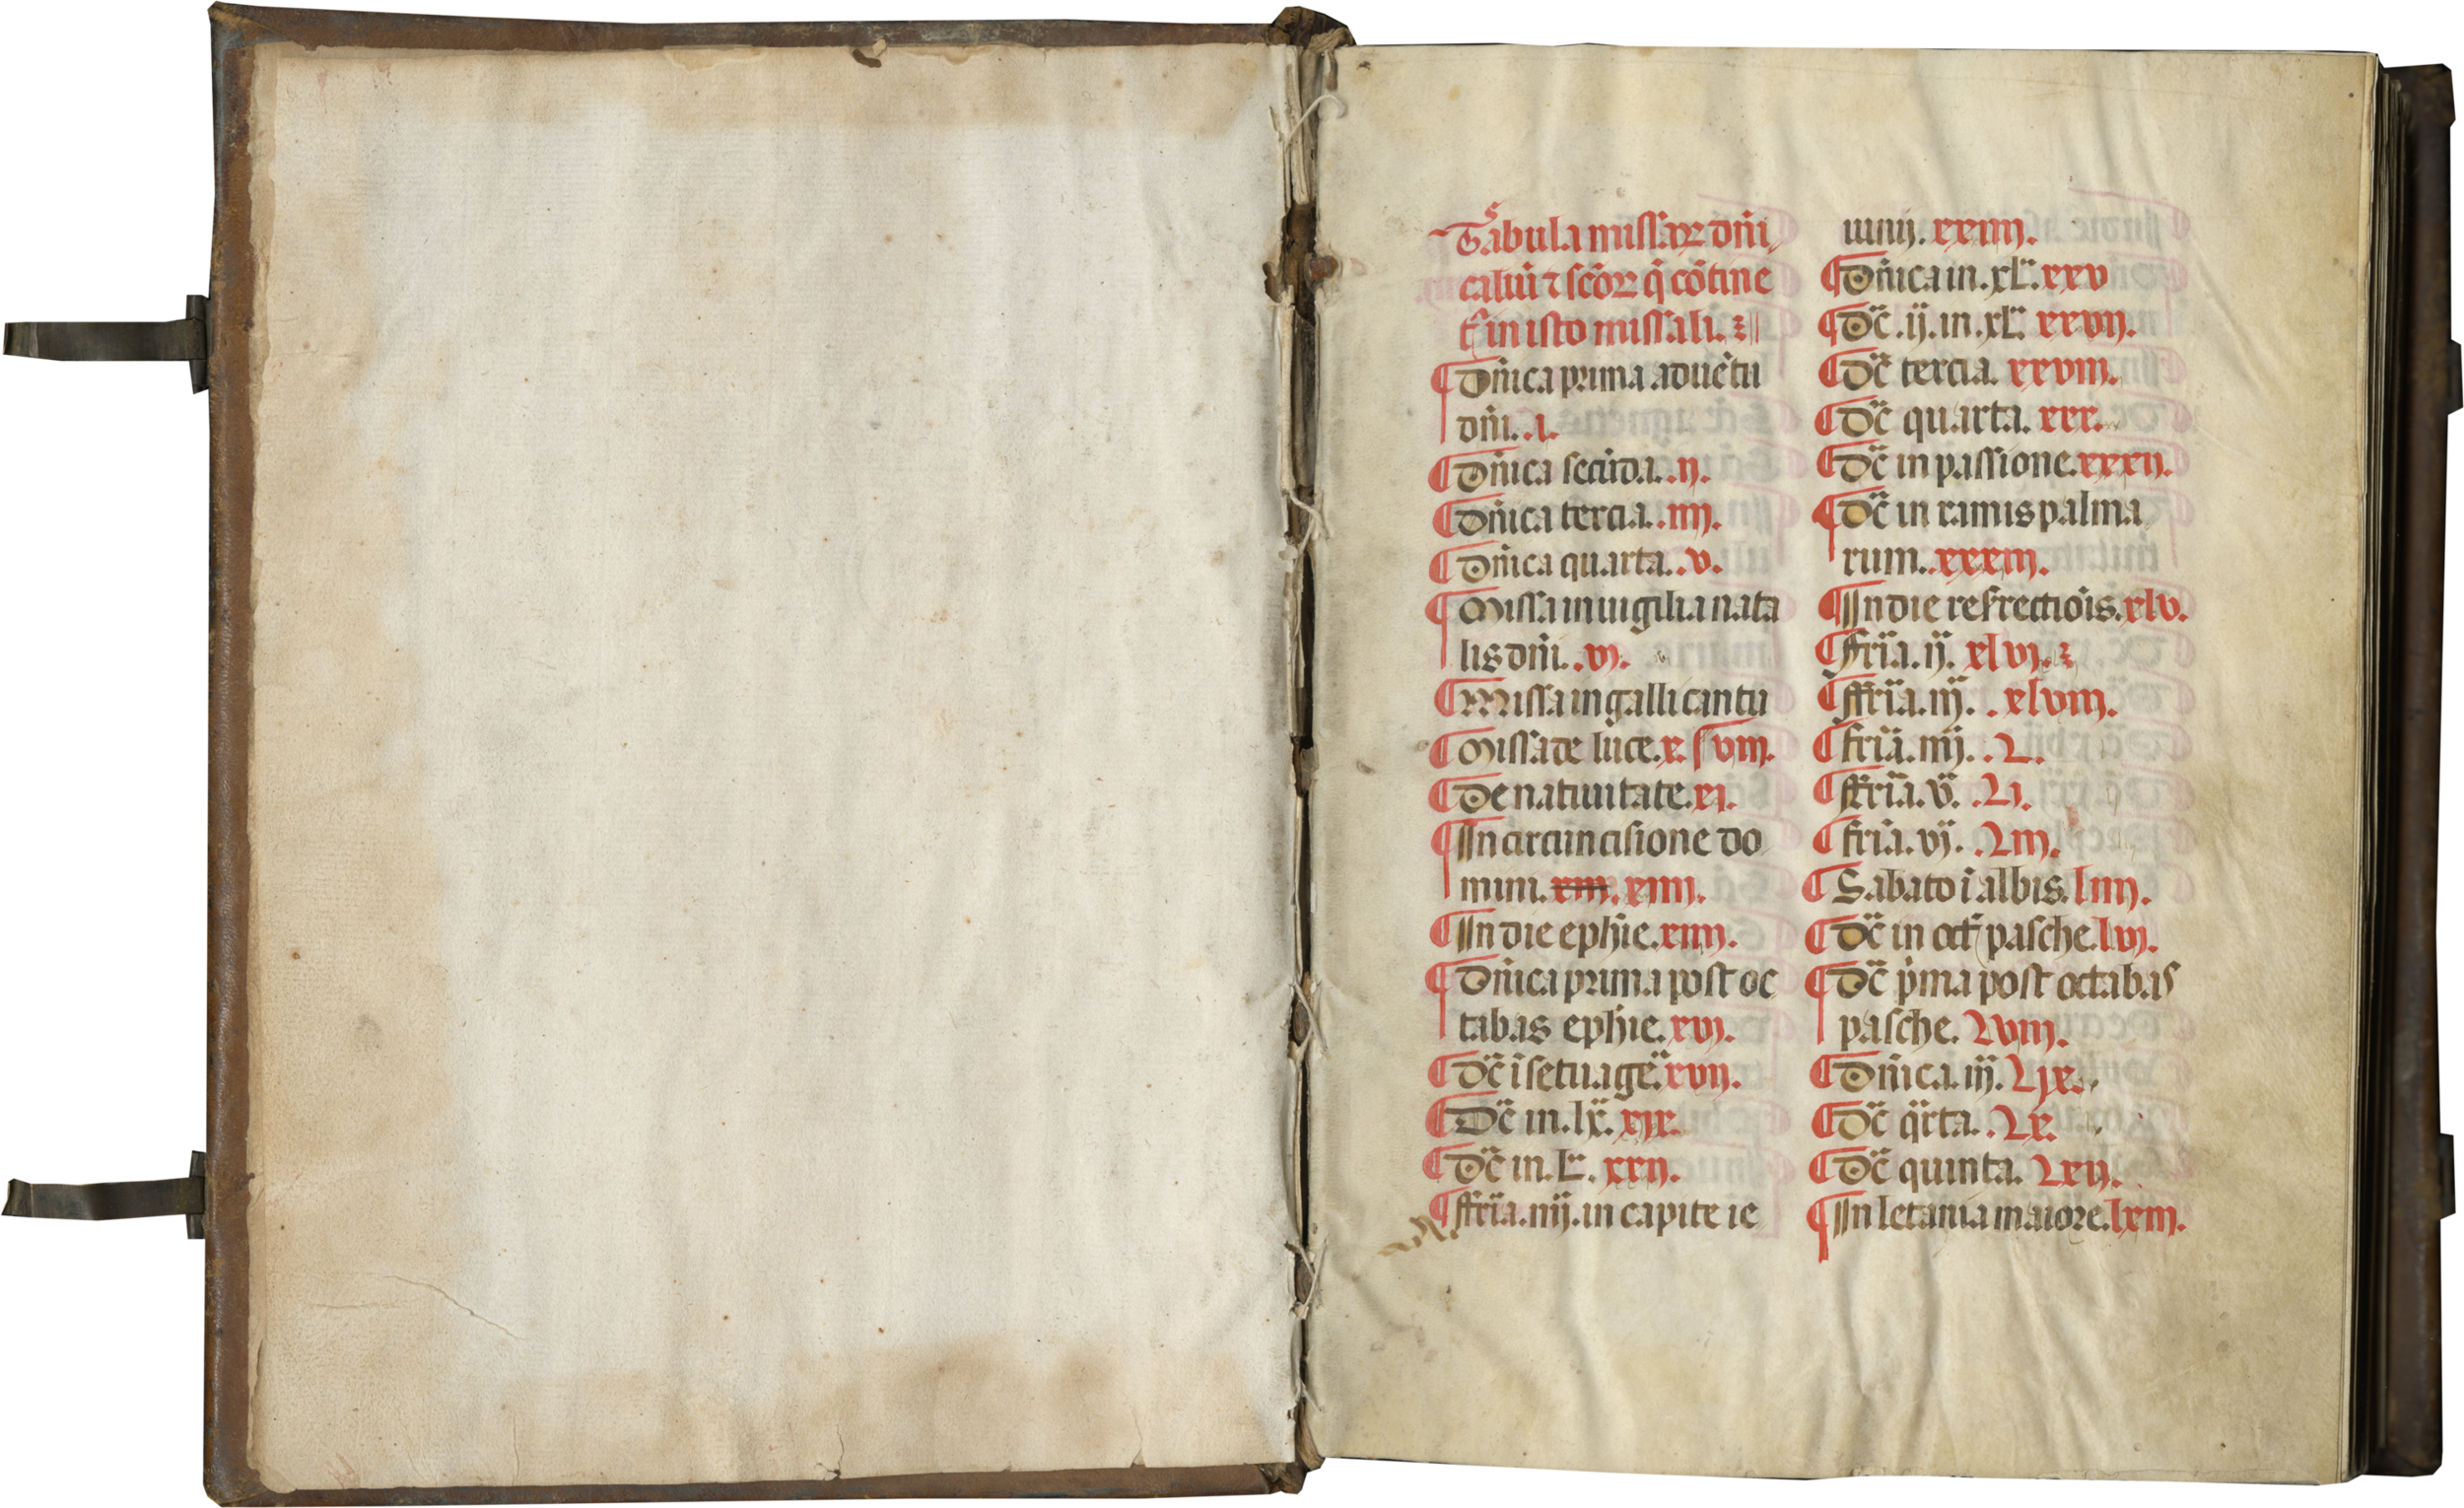 Tabula missaꝝ dn̄i
caliū ⁊ sc̄oꝝ q̄ cōtine
t᷑ in isto missali.
¶ Dn̄ica prima aduētu
dn̄i. .i.
¶ Dn̄ica secūda. .ij.
¶ Dn̄ica tercia. .iiij.
¶ Dn̄ica quarta. .v.
¶ Missa in uigilia nata
lis dn̄i. .vi.
¶ Missa in galli cantu
¶ Missa de luce. x. viij.
¶ De natiuitate. xi.
¶ In circuncisione do
mini. xiij. xiiij.
¶ In die ephīe. xiiij.
¶ Dn̄ica prima post oc
tabas ephīe. xvi.
¶ Dc̄ ī setuage. xvij.
¶ Dc̄ in. lx. xix.
¶ Dc̄ in. L. xxij.
¶ ffria. iiij. in capite ie
iunij. xxiiij.
¶ Dn̄ica in. xl. xxv
¶ Dc̄ .ij. in. xl. xxvij.
¶ Dc̄ tercia. xxviij.
¶ Dc̄ quarta. xxx.
¶ Dc̄ in passione. xxxij.
¶ Dc̄ in ramis palma
rum. .xxxiij.
¶ In die resrectiōis. xlv.
¶ ffria. ij. xlvi.
¶ ffria. iij. . xlviij.
¶ fria. iiij. .L.
¶ ffria. v. .Li.
¶ fria. vj. .Liij.
¶ Sabato ī albis. liiij.
¶ Dc̄ in oct̄ pasche. lvi.
¶ Dc̄ p̄ma post octabas
pasche. Lviij.
¶ Dn̄ica. iij. Lix.
¶ Dc̄ qr̄ta. .Lx.
¶ Dc̄ quinta. Lxij.
¶ In letania maiore. lxiij.